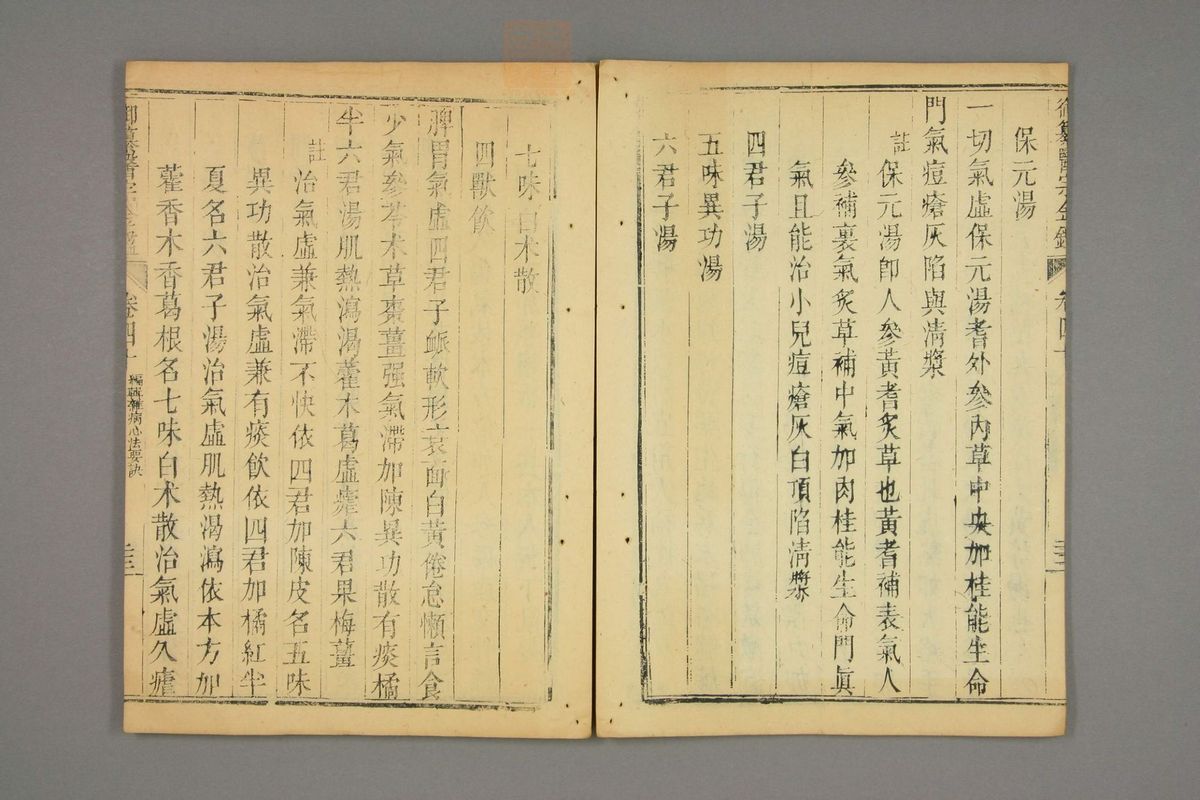 御纂醫宗金鑑 卷四十
保元湯
一切氣虛保元湯耆外參內草中央加桂能生命
門氣痘瘡灰陷與淸漿
註保元湯卽人參黃耆炙草也黃耆補表氣人
參補裏氣炙草補中氣加肉桂能生命門眞
氣且能治小兒痘瘡灰白頂陷淸漿
四君子湯
五味異功湯
六君子湯
七味白术散
四獸飲
脾胃氣虛四君子脈軟形衰面白黃倦怠懶言食
少氣參苓术草棗薑强氣滯加陳異功散有痰橘
半六君湯肌熱瀉渴藿木葛虛瘧六君果梅薑
註治氣虛兼氣滯不快依四君加陳皮名五味
異功散治氣虛兼有痰飲依四君加橘紅半
夏名六君子湯治氣虛肌熱渴瀉依本方加
藿香木香葛根名七味白术散治氣虛久瘧
御纂醫宗金鑑 卷四十 編輯雜病心法要訣